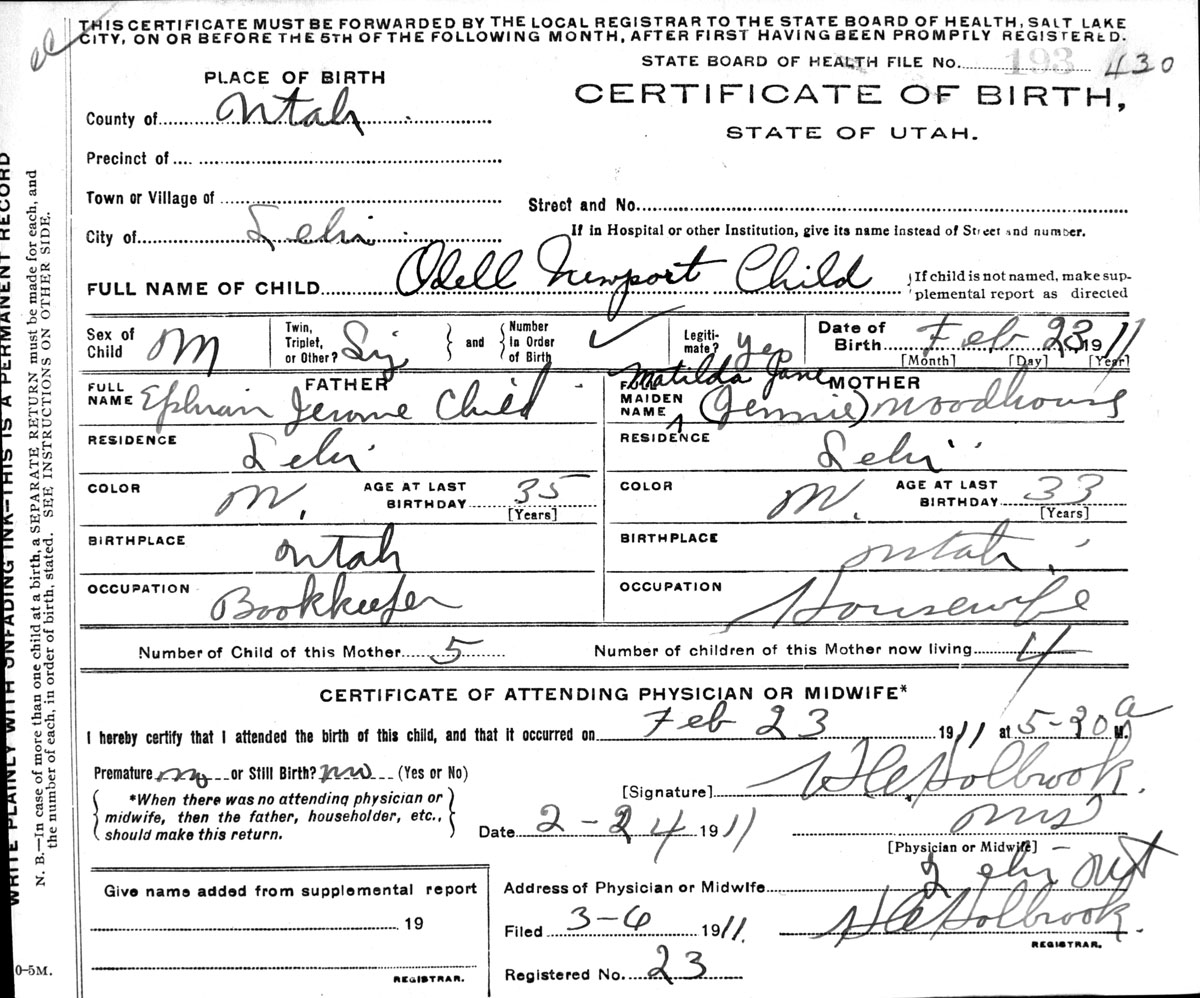 THIS CERTIFICATE MUST BE FORWARDED BY THE LOCAL REGISTRAR TO THE STATE BOARD OF HEALTH, SALT LAKE
CITY, ON OR BEFORE THE 5TH OF THE FOLLOWING MONTH, AFTER FIRST HAVING BEEN PROMPTLY REGISTERED.
STATE BOARD OF HEALTH FILE No. 193 430
PLACE OF BIRTH
CERTIFICATE OF BIRTH,
STATE OF UTAH.
County of Utah
Precinct of
Town or Village of
Street and No.
City of Lehi
If in Hospital or other Institution, give its name instead of Street and number.
FULL NAME OF CHILD Odell Newport Child
If child is not named, make sup-
plemental report as directed
Sex of Child M Twin, Triplet, or Other? Sig and Number In Order of Birth ✓ Legiti-mate? yes Date of Birth Feb 23 1911
[Month] [Day] [Year]
FATHER
Matilda Jane MOTHER
FULL NAME Ephraim Jerome Child
FULL MAIDEN NAME (Jennie) Woodhouse
RESIDENCE Lehi
RESIDENCE Lehi
COLOR W. AGE AT LAST BIRTHDAY 35 [Years]
COLOR W. AGE AT LAST BIRTHDAY 33 [Years]
BIRTHPLACE Utah
BIRTHPLACE Utah
OCCUPATION Bookkeeper
OCCUPATION Housewife
Number of Child of this Mother 5 Number of children of this Mother now living 4
CERTIFICATE OF ATTENDING PHYSICIAN OR MIDWIFE*
I hereby certify that I attended the birth of this child, and that it occurred on Feb 23 1911 at 5-30 a M.
Premature no or Still Birth? no (Yes or No)
[Signature] Holbrook.
*When there was no attending physician or
midwife, then the father, householder, etc.,
should make this return.
Date 2-24 1911
[Physician or Midwife]
Give name added from supplemental report
19
REGISTRAR.
Address of Physician or Midwife Lehi Ut
Filed 3-6 1911. Holbrook.
REGISTRAR.
Registered No. 23
WRITE PLAINLY WITH UNFADING INK—THIS IS A PERMANENT RECORD
N. B.—In case of more than one child at a birth, a SEPARATE RETURN must be made for each, and
the number of each, in order of birth, stated. SEE INSTRUCTIONS ON OTHER SIDE.
0-5M.